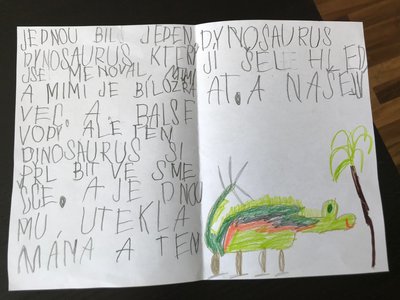 JEDNOU BIL JEDEN
DYNOSAURUS KTERI
JSE MENOVAL MIMI
A MIMI JE BILOŽRA
VEC. A BALSE
VODY. ALE TEN
DINOSAURUS SI
PRL BIT VE SME
ČCE. A JE DNOU
MU UTEKLA
MÁMA A TEN
DYNOSAURUS
JI ŠELE HLED
AT. A NAŠEL